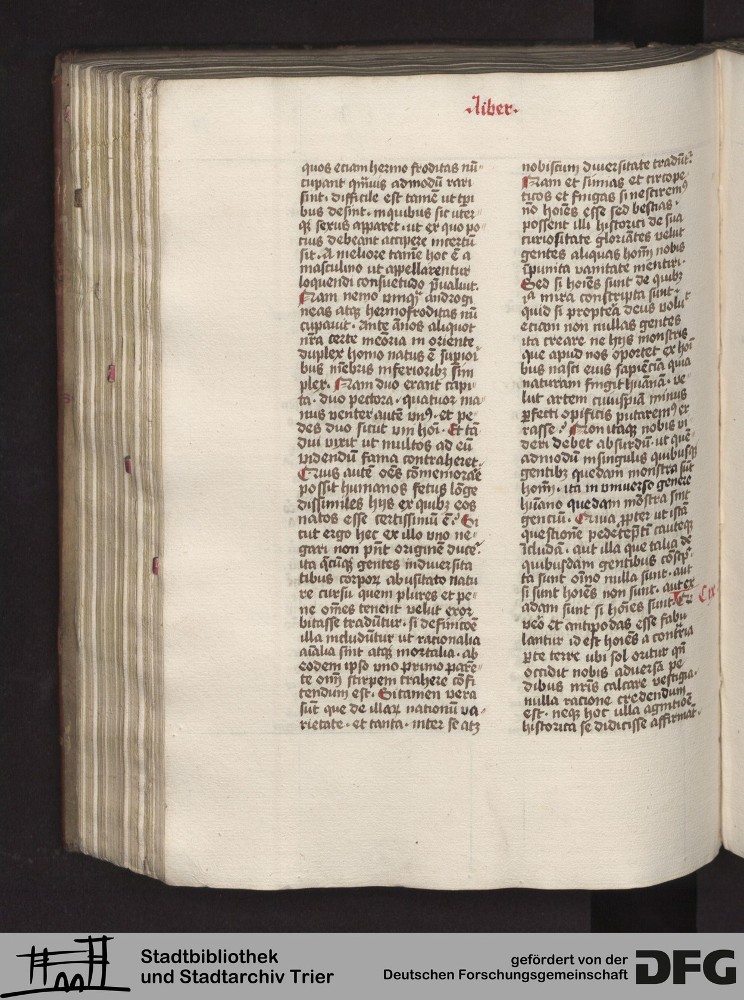 Liber
quos eciam hermo froditas nū
cupant qm̄uis admodū rari
sint · difficile est tamē ut tp̄i
bus desint · in quibus sic uter
qꝫ sexus apparet · ut ex quo po
cius debeant accipere incertū
sit · A meliore tamē hoc ē a
masculino ut appellarentur
loquendi consuetudo p̄ualuit.
Nam nemo vnqꝫ androgi
neas atqꝫ hermofroditas nū
cupauit · Ante ānos aliquot
nr̄a certe mēoria in oriente
duplex homo natus ē supioī
bus mēbris inferioribꝫ sim
plex · Nam duo erant capi
ta · duo pectora · quatuor ma
nus venter autē vnꝰ · et pe
des duo sicut vni hoī · Et tā
diu vixit ut multos ad eū
videndū fama contraheret.
Quis autē oēs cōmemorare
possit humanos fetus lōge
dissimiles hijs ex quibꝫ eos
natos esse certissimū ē · Si
cut ergo hec ex illo vno ne
gari non pn̄t originē duce
ita qcūqꝫ gentes in diuersita
tibus corporꝝ ab usitato natu
re cursu quem plures et pe
ne om̄es tenent velut exor
bitasse tradūtur · si definicōe
illa includūtur ut rationalia
aīalia sint atqꝫ mortalia · ab
eodem ipso vno primo pare
te om̄ stirpem trahere cōfi
tendum est · Si tamen vera
sūt que de illaꝝ nationū va
rietate · et tanta · inter se atqꝫ
nobiscum diuersitate tradūt
Nam et simias et circope
ticos et spingas si nesciremꝰ
nō hoīes esse sed bestias ·
possent illi historici de sua
curiositate gloriātes velut
gentes aliquas hoīm nobis
īpunita vanitate mentiri ·
Sed si hoīes sunt de quibꝫ
ita mira conscripta sunt ·
quid si propterea deus voluit
eciam non nullas gentes
ita creare ne hijs monstris
que apud nos oportet ex hoī
bus nasci eius sapiēciā qua
naturam fingit hūanā · ve
lut artem cuiuspiā minus
ꝑfecti opificis putaremꝰ er
rasse · Non itaqꝫ nobis vi
deri debet absurdū · ut quē
admodū in singulis quibusqꝫ
gentibꝫ quedam monstra sūt
hoīm · ita in vniuerso genere
hūano quedam mōstra sint
genciū · Quia ꝓpter ut istā
questionē pedetēptī cauteqꝫ
ꝯcludā · aut illa que talia de
quibusdam gentibus cōscp̄
ta sunt oīno nulla sunt · aut
si sunt hoīes non sunt · aut ex
adam sunt si hoīes sunt · Qd̄ Cix
vero et antipodas esse fabu
lantur id est hoīes a contrīa
ꝑte terre ubi sol oritur qn̄
occidit nobis aduersa pe
dibus nr̄is calcare vestigia ·
nulla ratione credendum
est · neqꝫ hoc ulla agnitiōe
historica se didicisse affirmāt ·
Stadtbibliothek
und Stadtarchiv Trier
gefördert von der
Deutschen Forschungsgemeinschaft
DFG